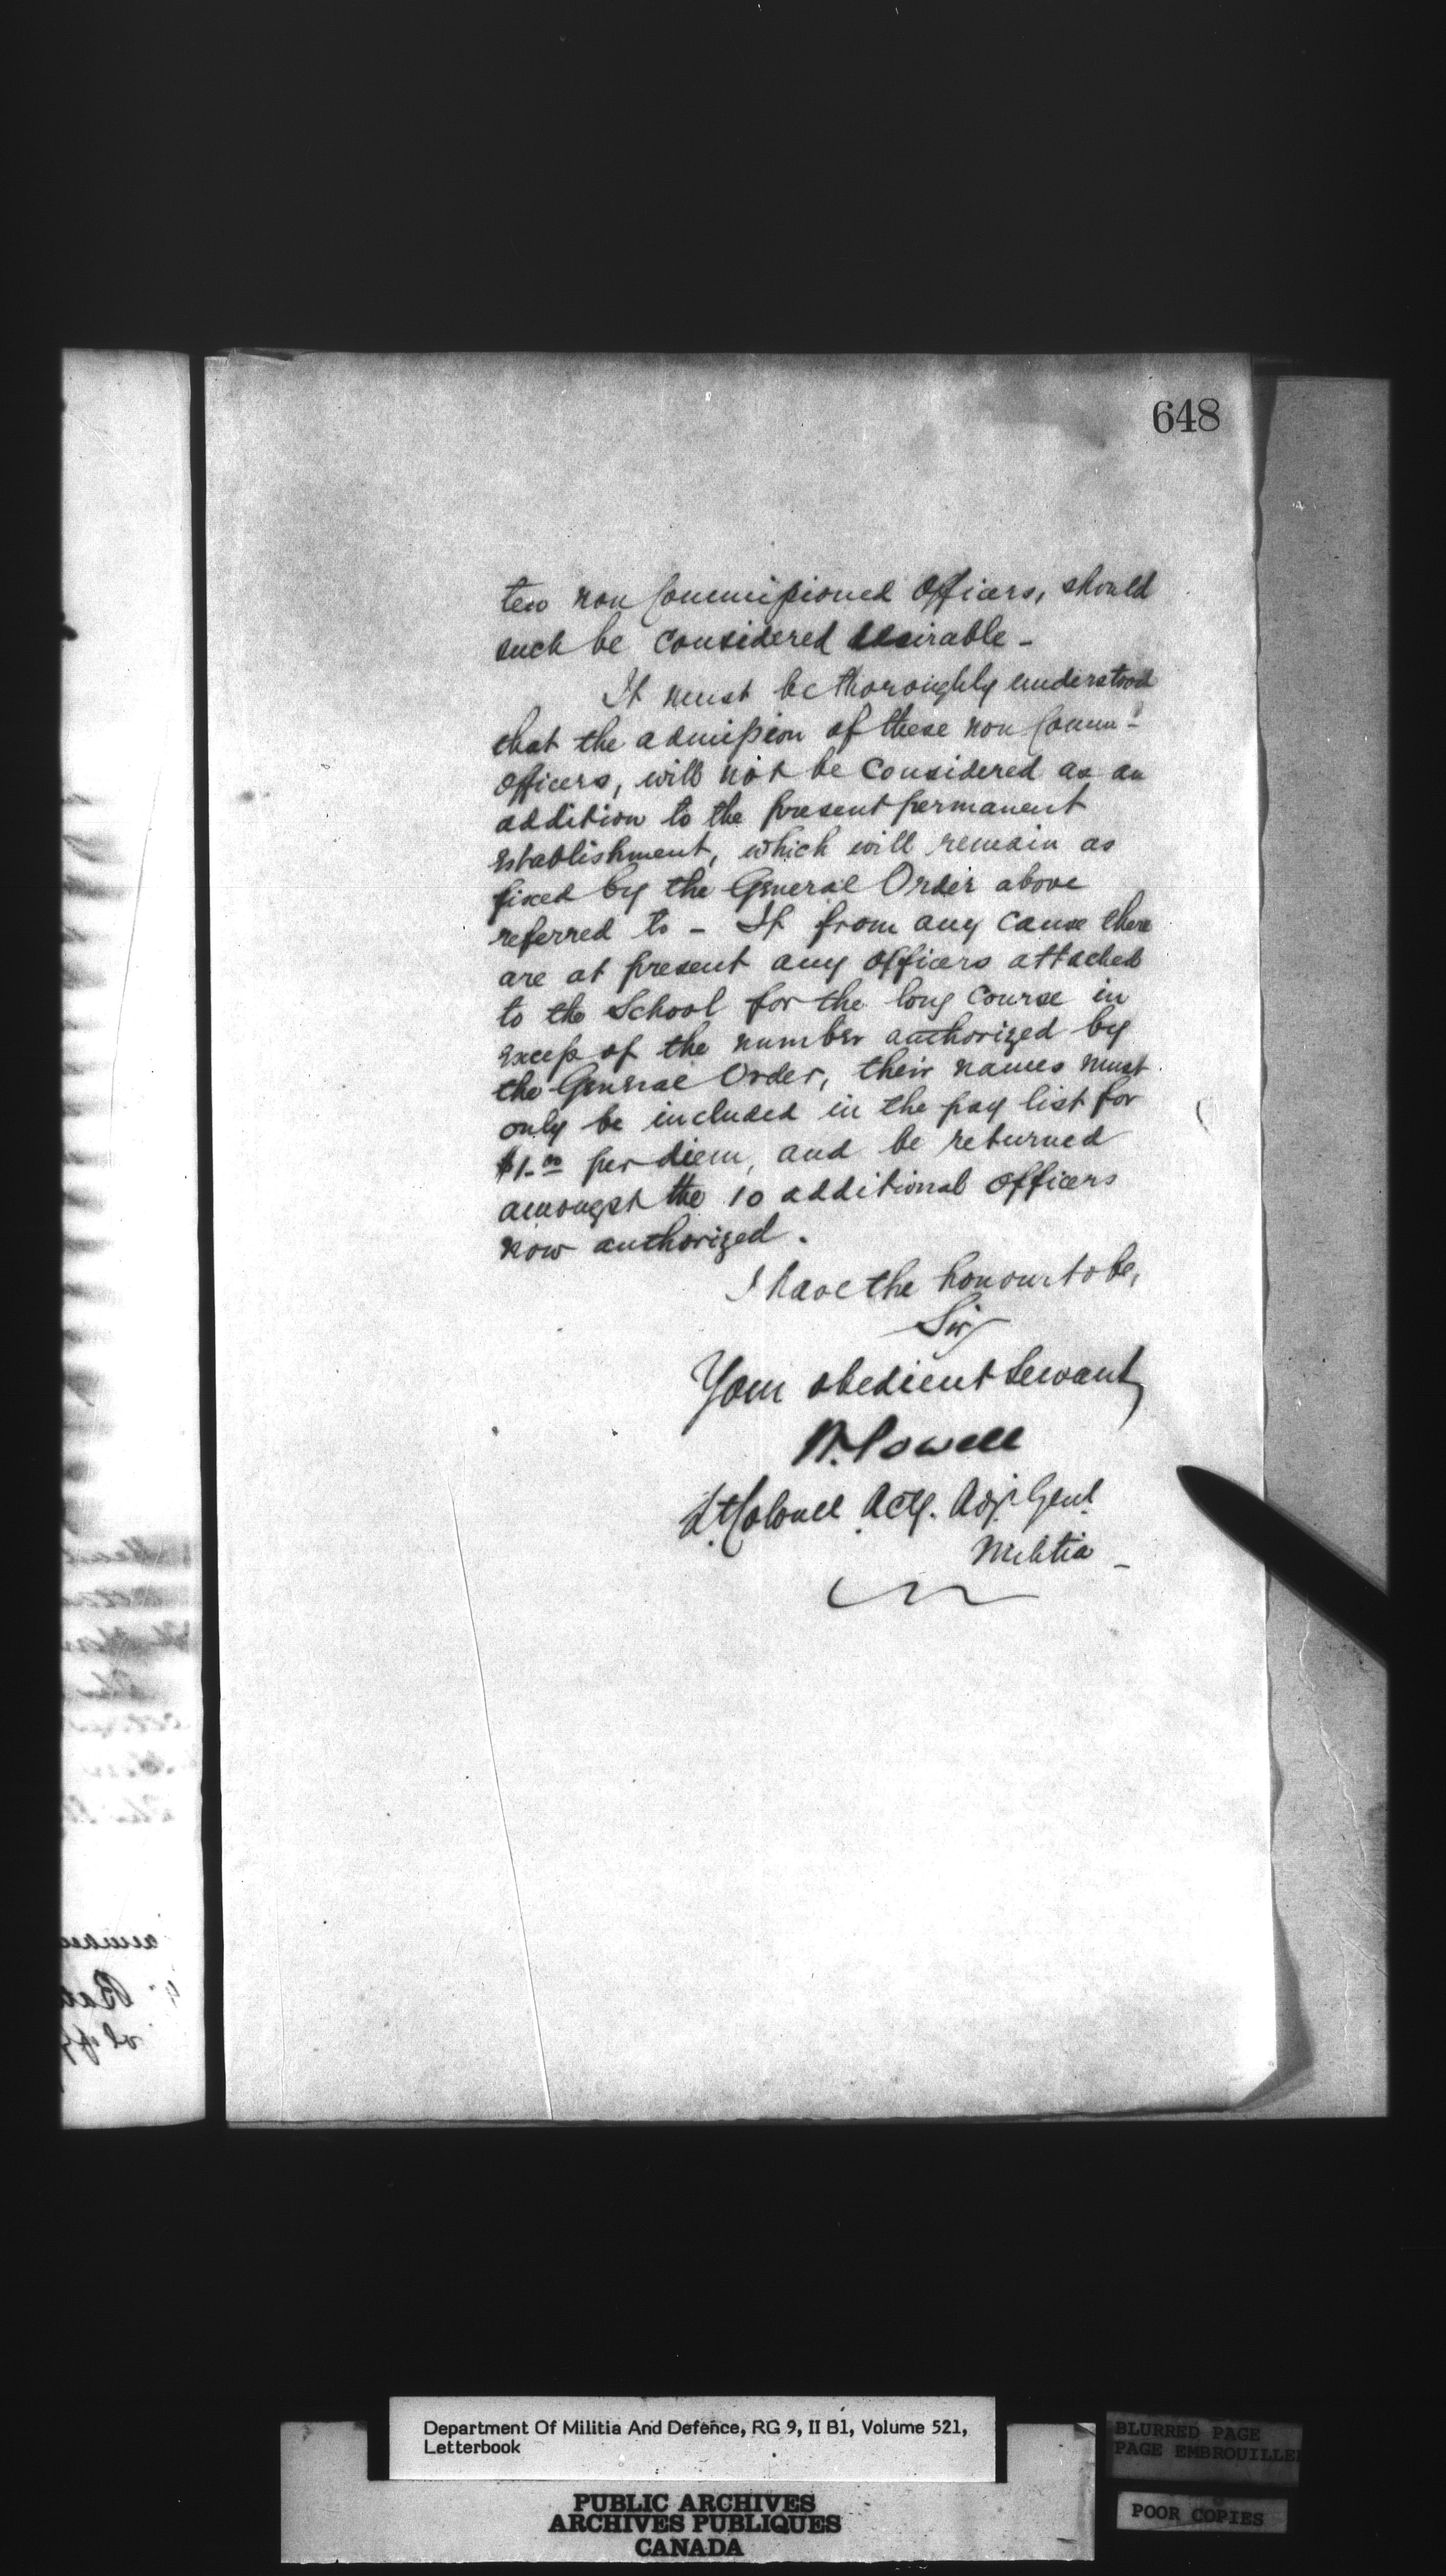 648
ten non Commissioned Officers, should
such be considered desirable -
It must be thoroughly understood
that the admission of these non Comm:
Officers, will not be considered as an
addition to the present permanent
Establishment, which will remain as
fixed by the General Order above
referred to - If from any cause there
are at present any officers attached
to the School for the long Course in
excess of the number authorized by
the General Order, their names must
only be included in the pay list for
$1.00 per diem, and be returned
amongst the 10 additional Officers
now authorized.
I have the honour to be,
Sir
Your obedient Servant,
W. Powell
Lt Colonel Actg. Adjt. Genl.
Militia -
Department Of Militia And Defence, RG 9, II B1, Volume 521,
Letterbook
PUBLIC ARCHIVES
ARCHIVES PUBLIQUES
CANADA
BLURRED PAGE
PAGE EMBROUILLE
POOR COPIES